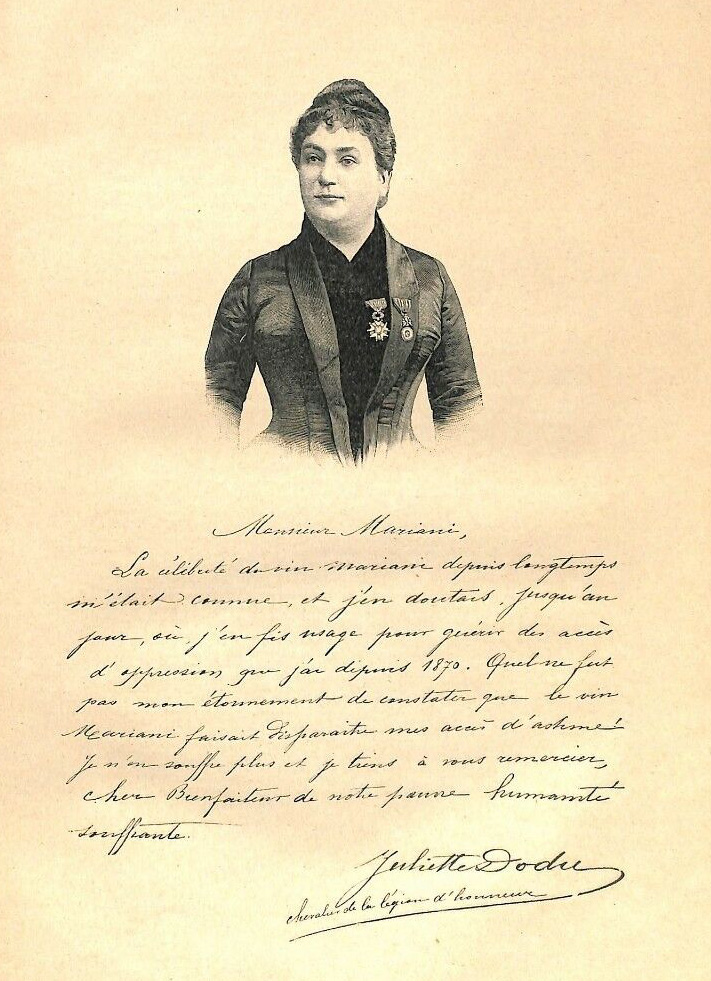 Monsieur Mariani,
La célébrité du vin Mariani depuis longtemps
m'était connue, et j'en doutais, jusqu'au
jour, où, j'en fis usage pour guérir des accès
d'oppression que j'ai depuis 1870. Quel ne fut
pas mon étonnement de constater que le vin
Mariani faisait disparaitre mes accès d'asthme!
Je n'en souffre plus et je tiens à vous remercier,
cher Bienfaiteur de notre pauvre humanité
souffrante.
Juliette Dodu
chevalier de la légion d'honneur